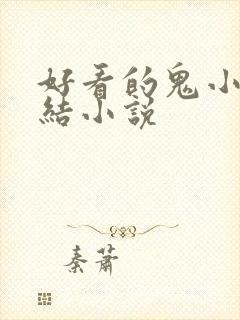 好看的鬼小
結小說
秦蕭